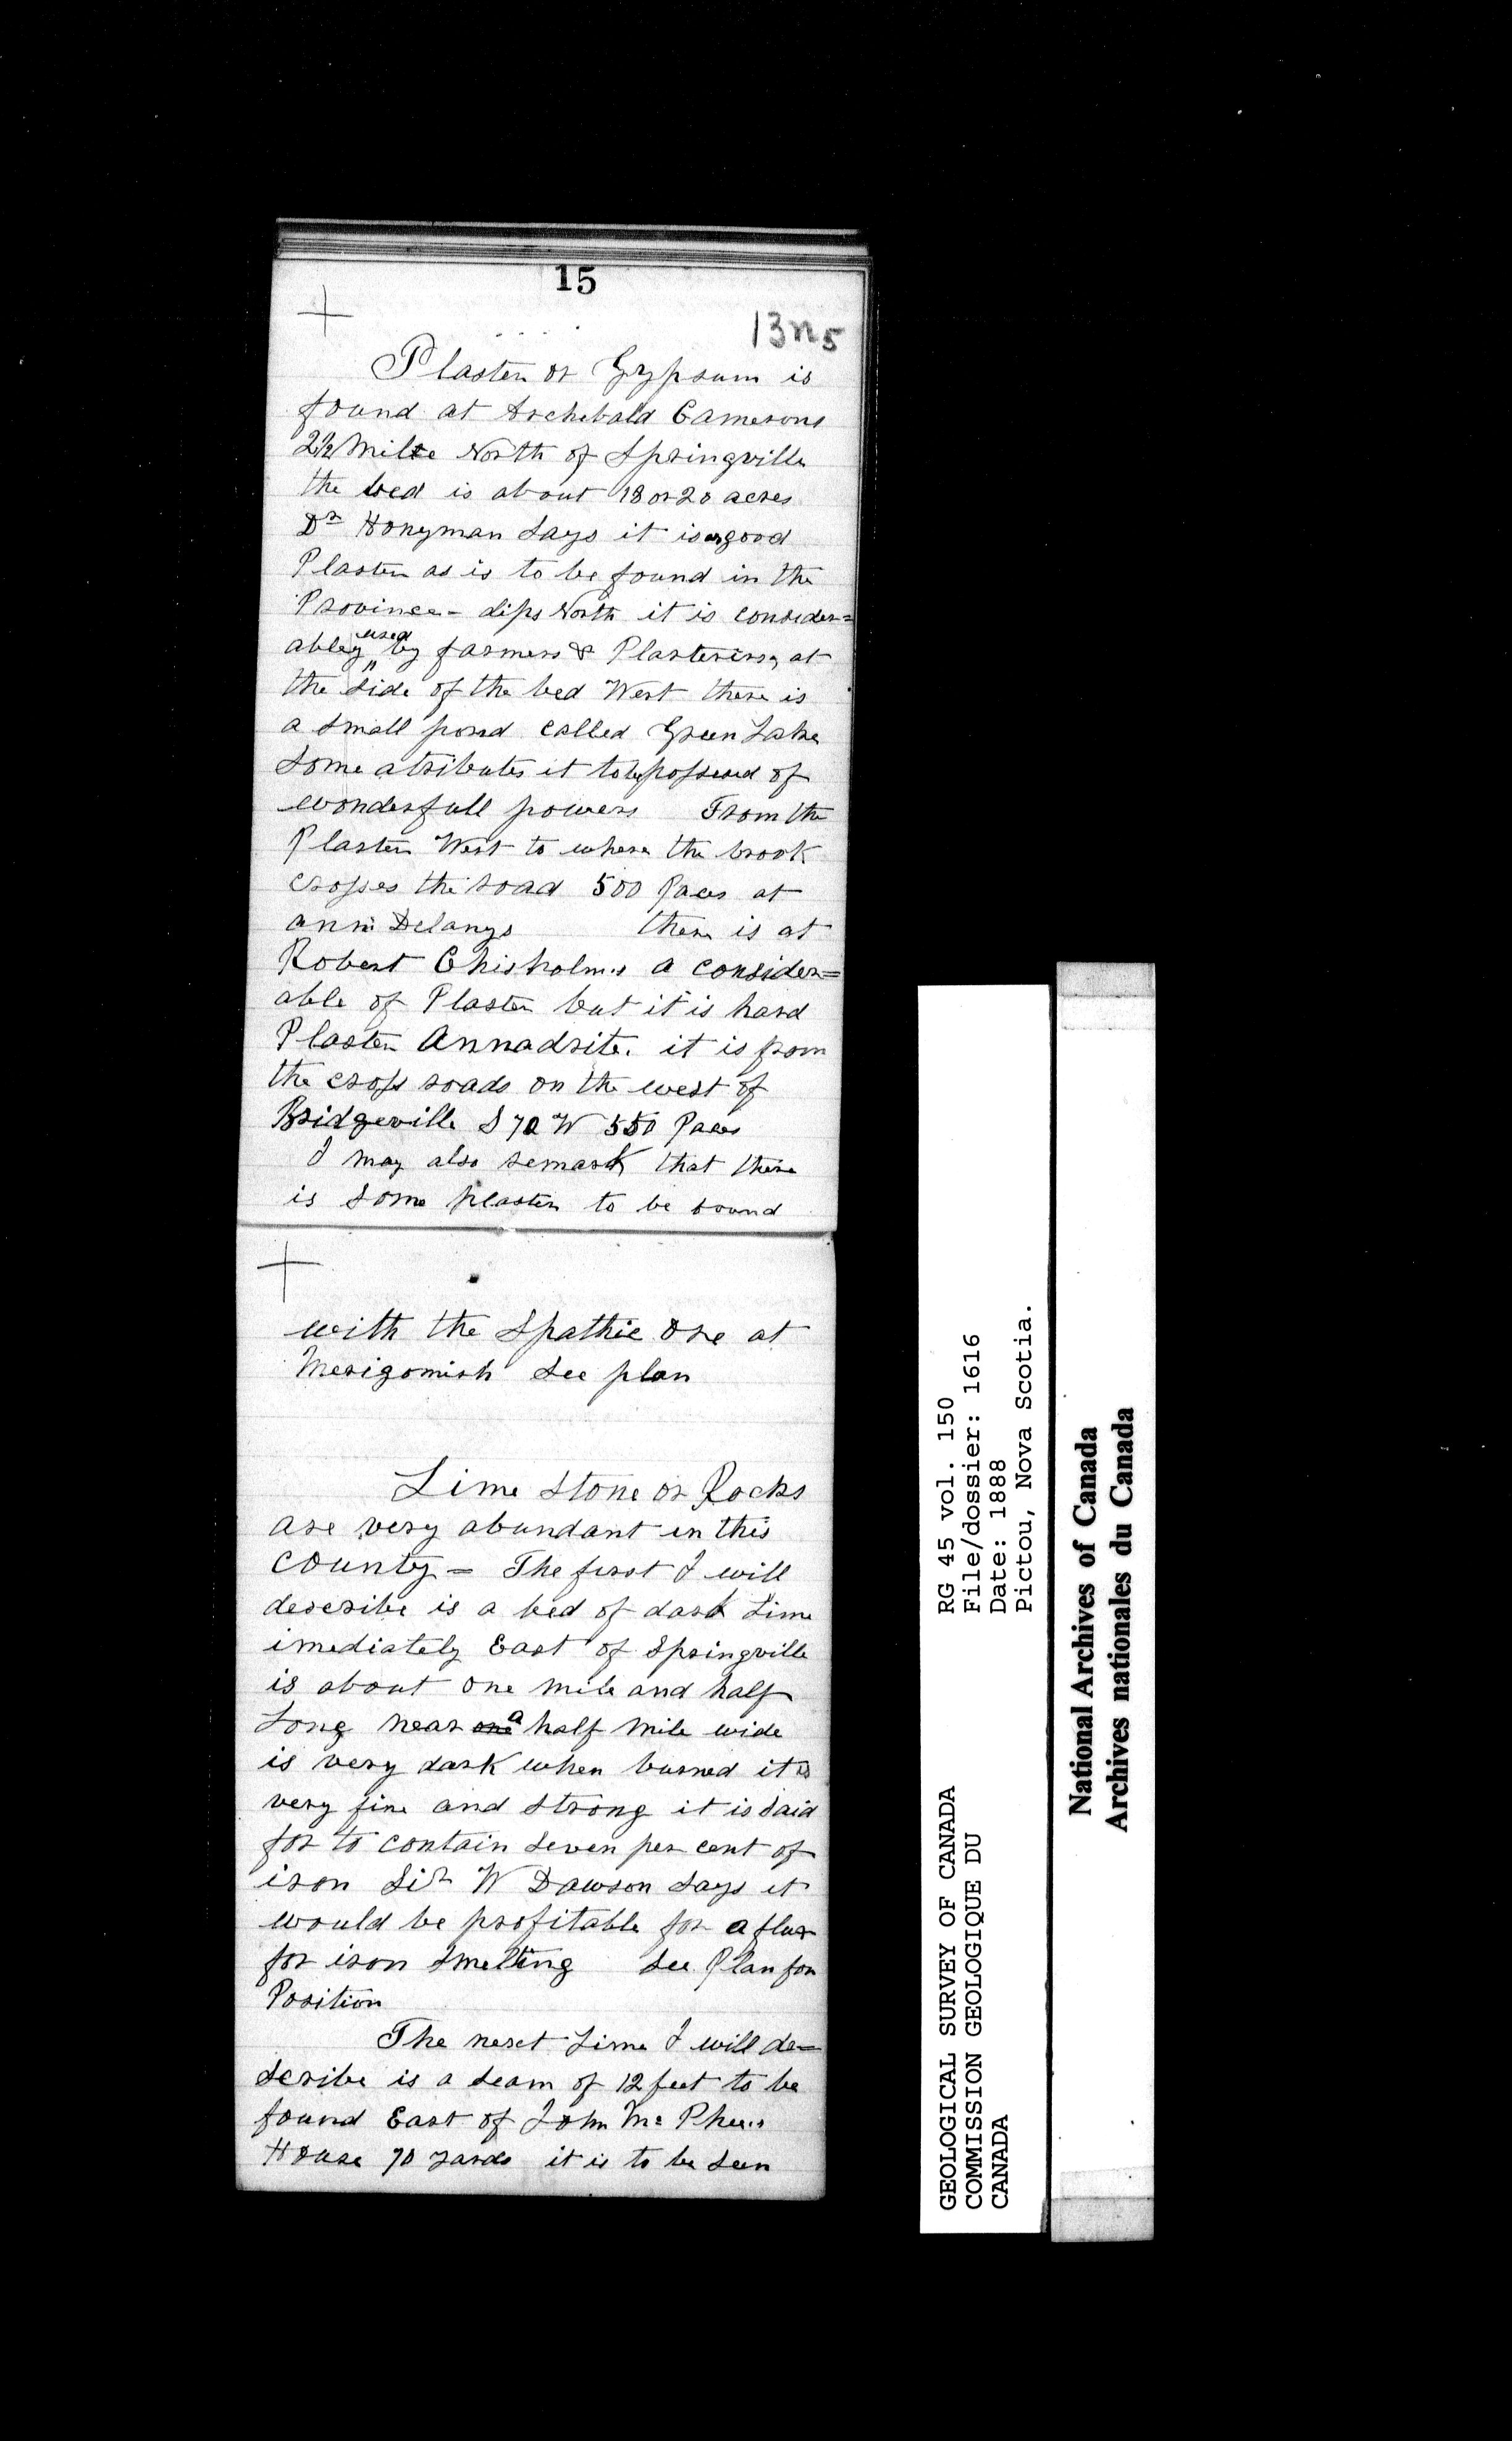 15
13n5
Plaster or Gypsum is
found at Archebald Camerons
2 1/2 Mile North of Springville
the bed is about 18 or 20 acres
Dr Honyman Says it is as good
Plaster as is to be found in the
Province - dips North it is consider=
abley used by farmers & Plasterers, at
the Side of the bed West there is
a Small pond called Green Lake
Some atributes it to be possesed of
wonderfull powers From the
Plaster West to where the brook
crosses the road 500 Paces at
Delanys there is at
Robert Chisholm's a consider=
able of Plaster but it is hard
Plaster Annadrite. it is from
the cross roads on the west of
Bridgeville S 70 W 550 Paces
I may also remark that there
is Some plaster to be found
with the Spathic Ore at
Merigomish See plan
Lime Stone or Rocks
are very abundant in this
County = The first I will
describe is a bed of dark Lime
imediately East of Springville
is about one mile and half
Long near one a half Mile wide
is very dark when burned it is
very fine and Strong it is Said
for to contain Seven per cent of
iron Sir W Dawson Says it
would be profitable for a flux
for iron Smelting See Plan for
Position
The next Lime I will de=
scribe is a Seam of 12 feet to be
found East of John Mc Phee's
House 70 yards it is to be Seen
RG 45 vol. 150
File/dossier: 1616
Date: 1888
Pictou, Nova Scotia.
GEOLOGICAL SURVEY OF CANADA
COMMISSION GEOLOGIQUE DU
CANADA
National Archives of Canada
Archives nationales du Canada